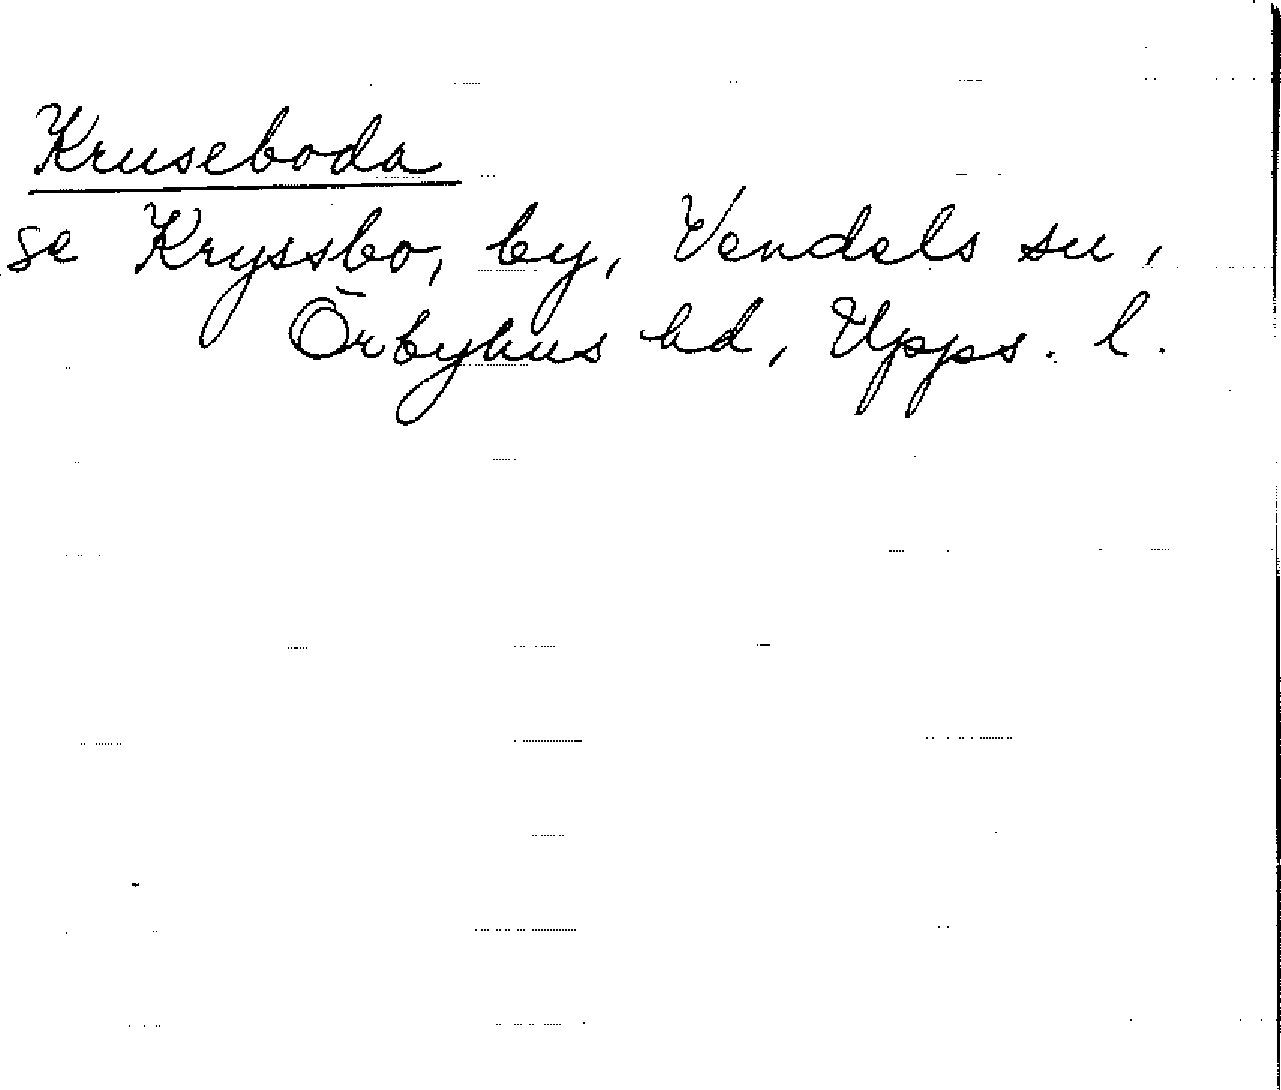 Kruseboda
se Kryssbo, by, Vendels sn,
Örbyhus hd, Upps. l.